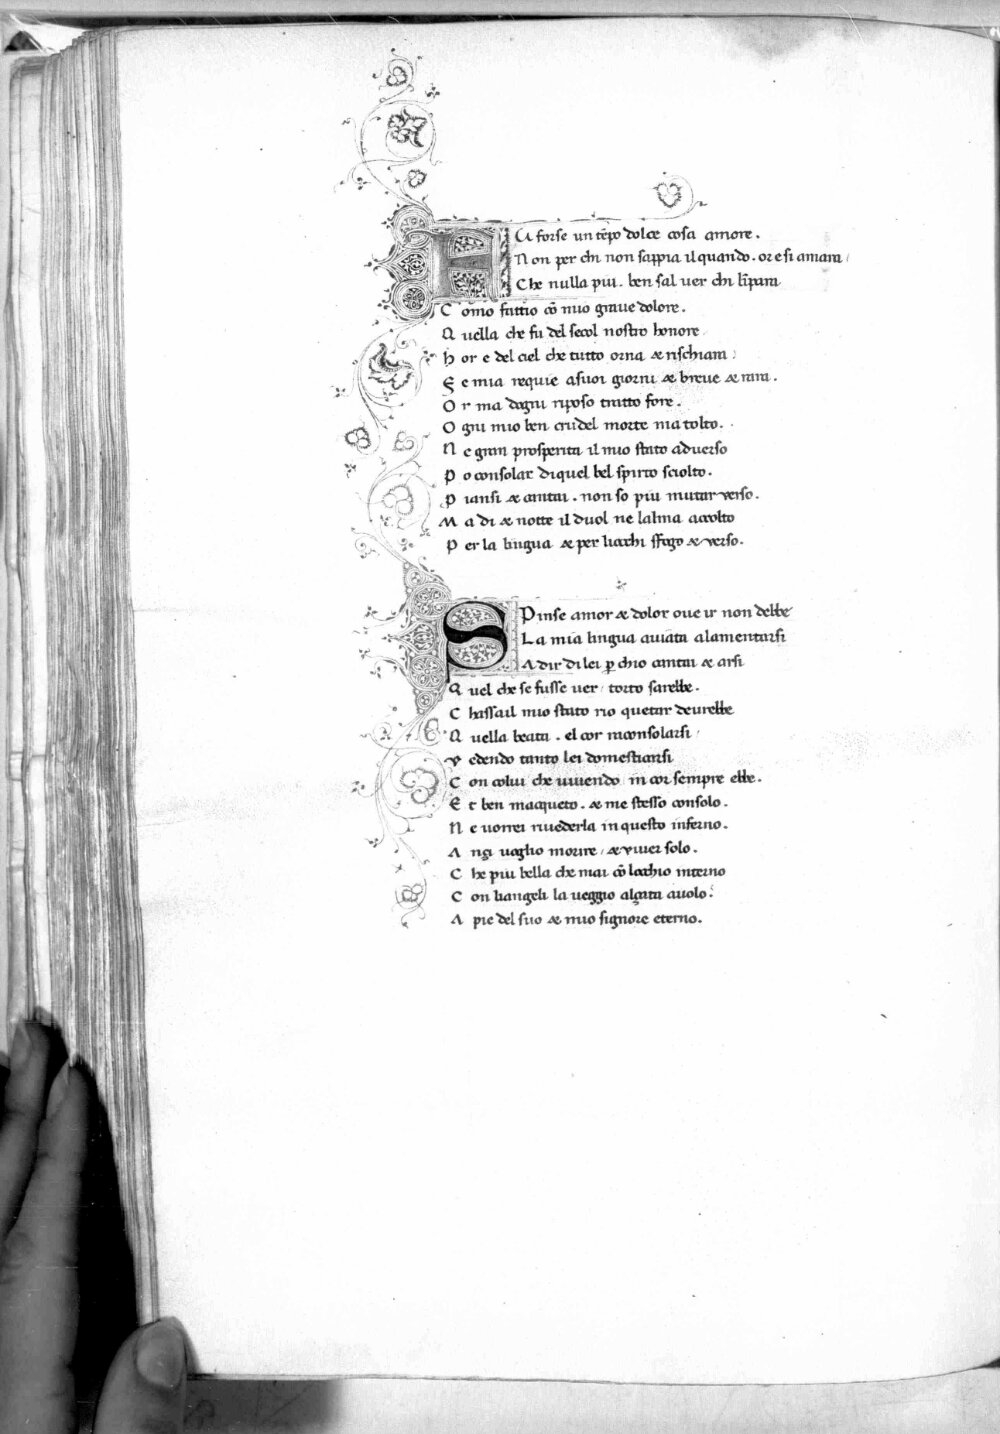 FU forse un tẽpo dolce cosa amore.
Non per chi non sappia il quando. or e si amara /
Che nulla piu. ben sal ver chi limpara
Como fattio cõ mio graue dolore.
Quella che fu del secol nostro honore
Hor e del ciel che tutto orna & rischiara :
Fe mia requie asuoi giorni & breue & rara.
Or ma dogni riposo tratto fore.
Ogni mio ben crudel morte ma tolto.
Ne gran prosperita il mio stato aduerso
Po consolar diquel bel spirto sciolto.
Piansi & cantai. non so piu mutar verso.
Ma di & notte il duol ne lalma accolto
Per la lingua & per liocchi sfogo & verso.
SPinse amor & dolor oue ir non debbe
La mia lingua auiata alamentarsi
A dir di lei p chio cantai & arsi
Quel che se fusse uer / torto sarebbe.
Chassail mio stato rio quetar deurebbe
Quella beata. el cor inconsolarsi /
Vedendo tanto lei domesticarsi
Con colui che uiuendo / in cor sempre ebbe.
Et ben macqueto. & me stesso consolo.
Ne uorrei riuederla in questo inferno.
Anzi uoglio morire / & viuer solo.
Che piu bella che mai cõ locchio interno
Con liangeli la ueggio alzata auolo :
A pie del suo & mio signore eterno.